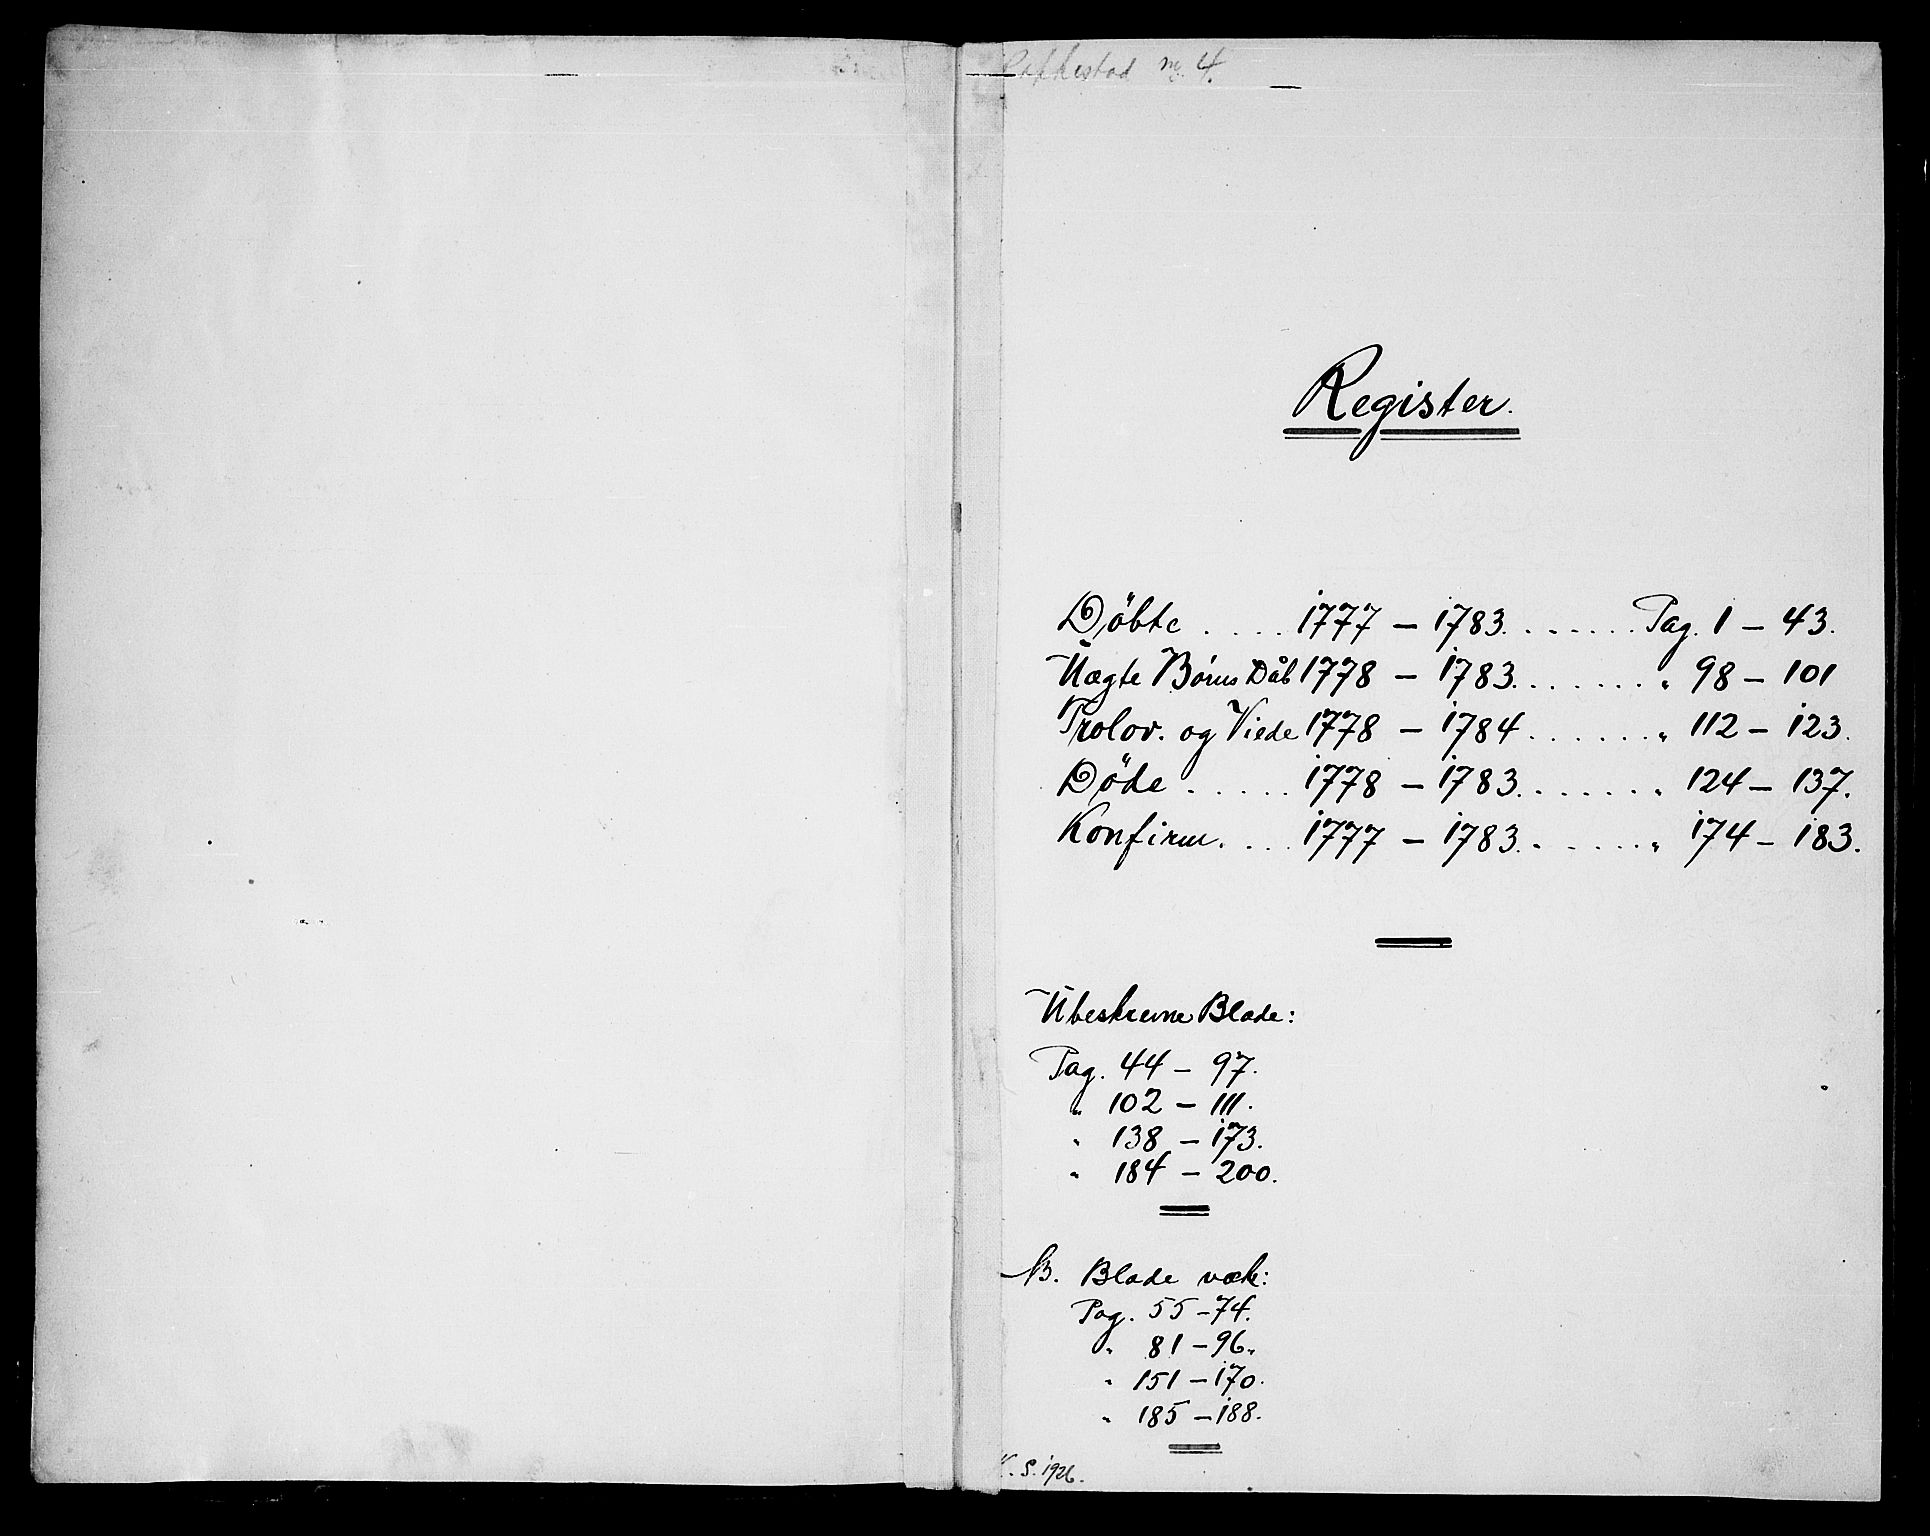 Rakkestad nr. 4.
Register.
Döbte . . . . 1777 – 1783 . . . . . . Pag. 1 – 43.
Uægte Børns Dåb 1778 – 1783 . . . . . . „ 98 – 101
Trolov. og Viede 1778 – 1784 . . . . . . „ 112 – 123.
Döde . . . . . 1778 – 1783 . . . . . . „ 124 – 137.
Konfirm. . . . 1777 – 1783 . . . . . . „ 174 – 183.
Ubeskrevne Blade:
Pag. 44 – 97.
„ 102 – 111.
„ 138 – 173.
„ 184 – 200.
NB. Blade væk:
Pag. 55 – 74.
„ 81 – 96.
„ 151 – 170.
„ 185 – 188.
S. 1926.